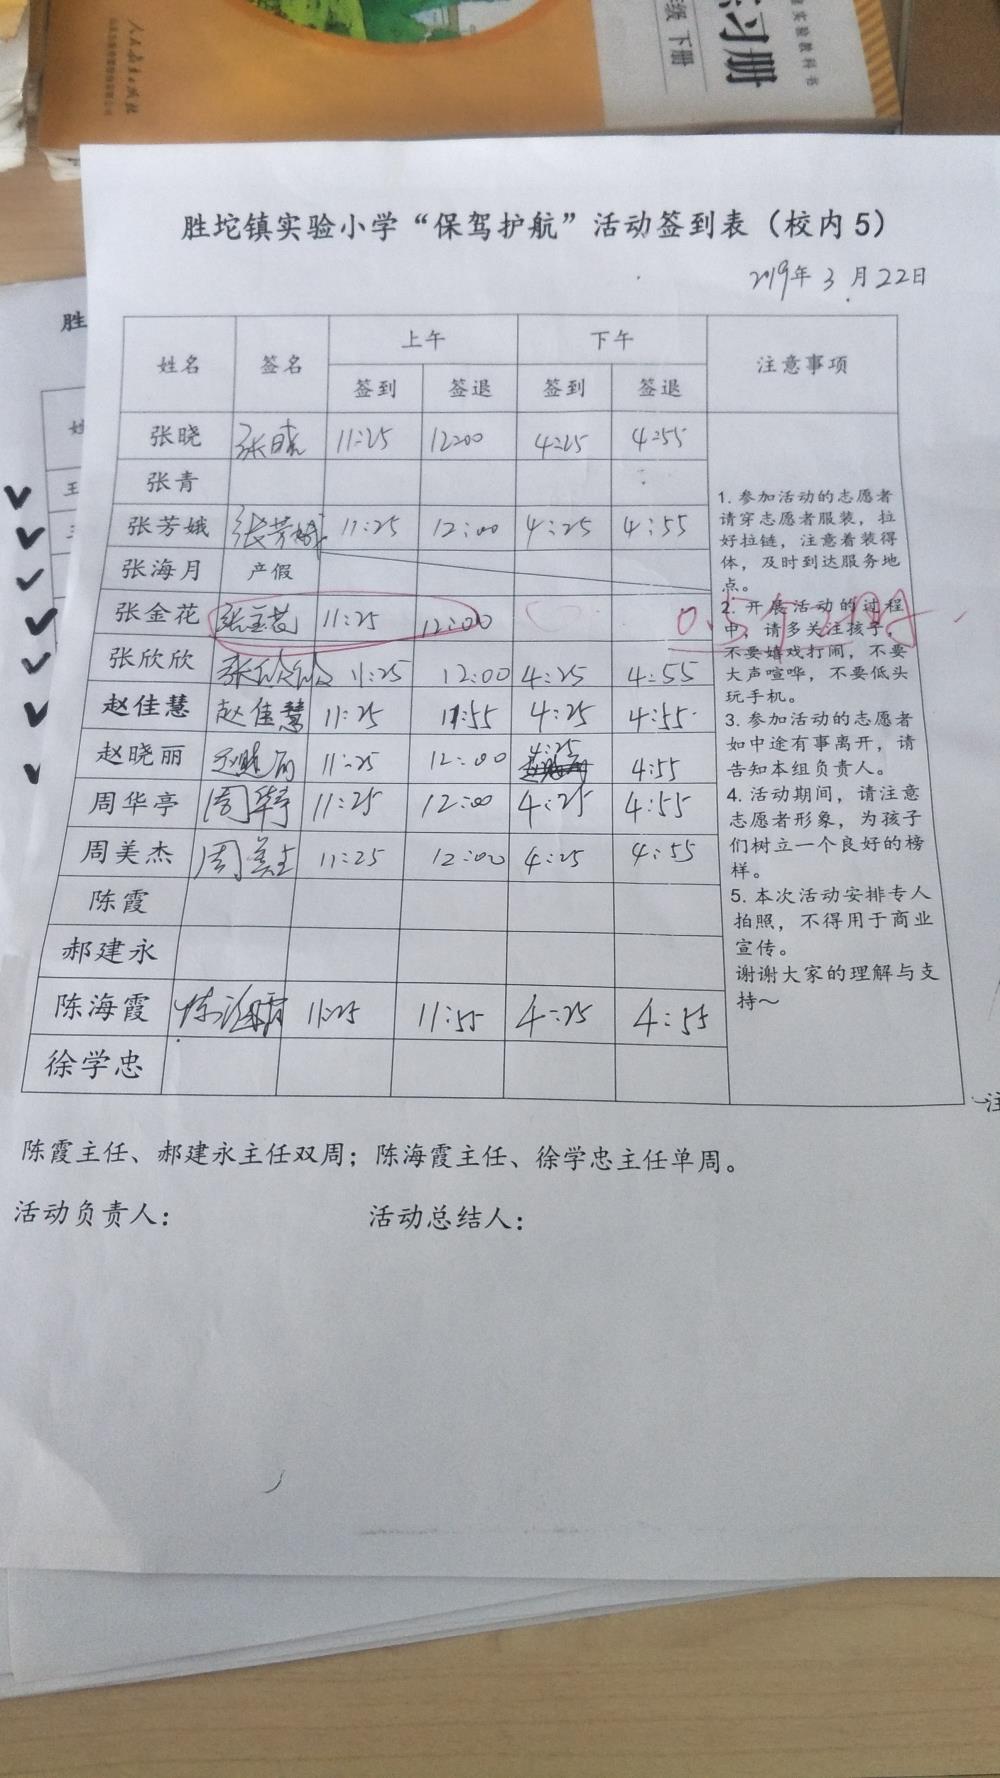 人民教育出版社
级 下册
习册
实验教科书
胜坨镇实验小学“保驾护航”活动签到表（校内5）
2019年 3 月 22日
胜
姓名 签名 上午 下午 注意事项
签到 签退 签到 签退
张晓 张晓 11:25 12:00 4:25 4:55
张青
张芳娥 张芳娥 11:25 12:00 4:25 4:55
张海月 产假
张金花 张金花 11:25 12:00
张欣欣 张欣欣 11:25 12:00 4:25 4:55
赵佳慧 赵佳慧 11:25 11:55 4:25 4:55
赵晓丽 赵晓丽 11:25 12:00 4:25 4:55
周华亭 周华亭 11:25 12:00 4:25 4:55
周美杰 周美杰 11:25 12:00 4:25 4:55
陈霞
郝建永
陈海霞 陈海霞 11:25 11:55 4:25 4:55
徐学忠
1. 参加活动的志愿者
请穿志愿者服装，拉
好拉链，注意着装得
体，及时到达服务地
点。
2. 开展活动的过程
中，请多关注孩子，
不要嬉戏打闹，不要
大声喧哗，不要低头
玩手机。
3. 参加活动的志愿者
如中途有事离开，请
告知本组负责人。
4. 活动期间，请注意
志愿者形象，为孩子
们树立一个良好的榜
样。
5. 本次活动安排专人
拍照，不得用于商业
宣传。
谢谢大家的理解与支
持～
陈霞主任、郝建永主任双周；陈海霞主任、徐学忠主任单周。
活动负责人： 活动总结人：